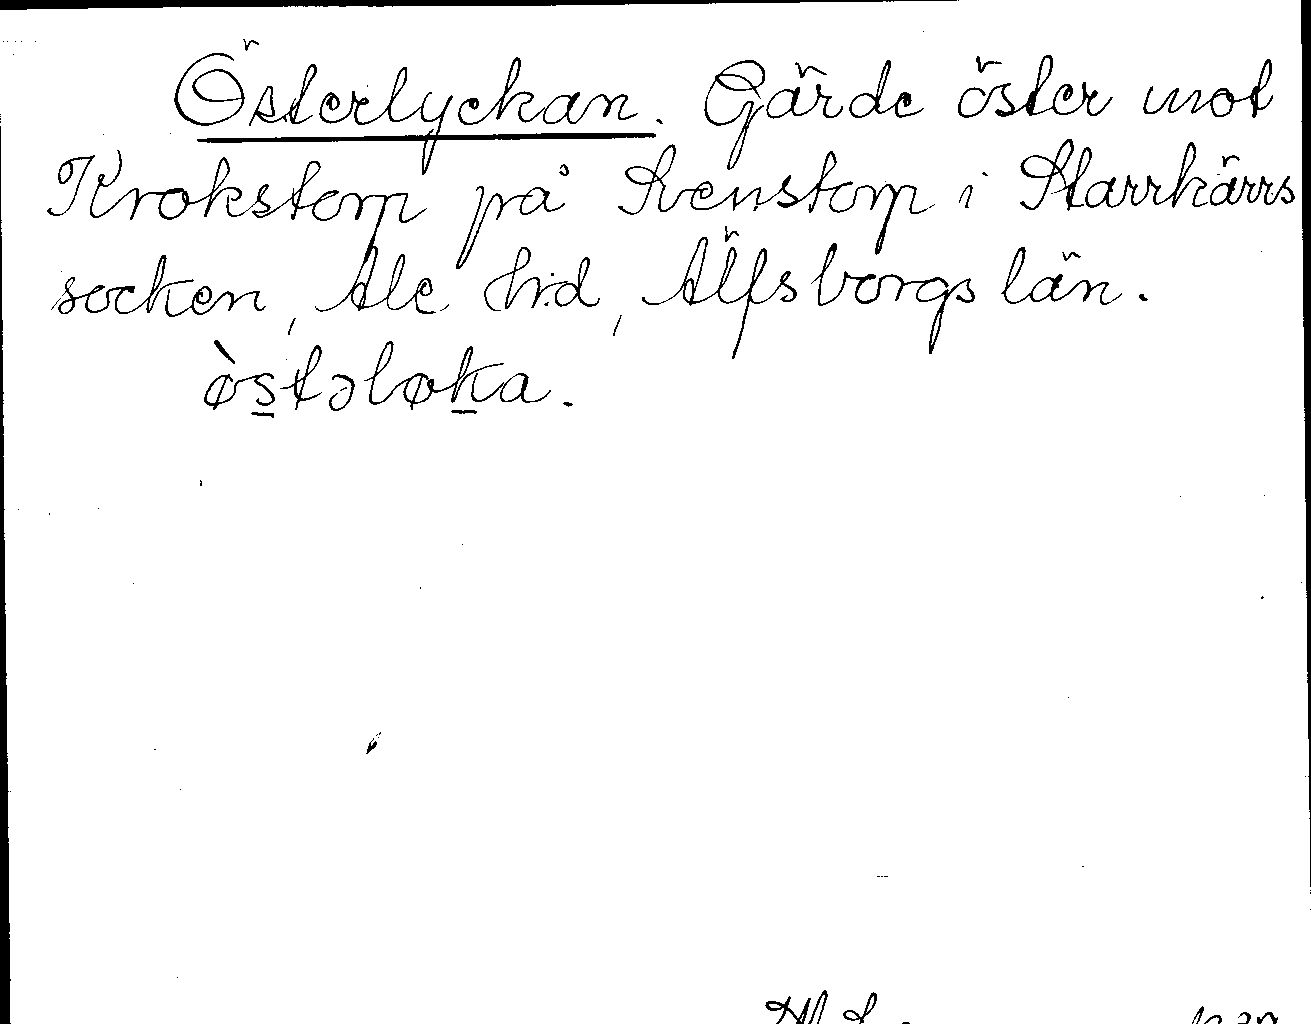 Österlyckan. Gärde öster mot
Krokstorp på Svenstorp i Starrkärrs
socken, Ale hd, Älfsborgs län.
ø̀s̲təløk̲a.